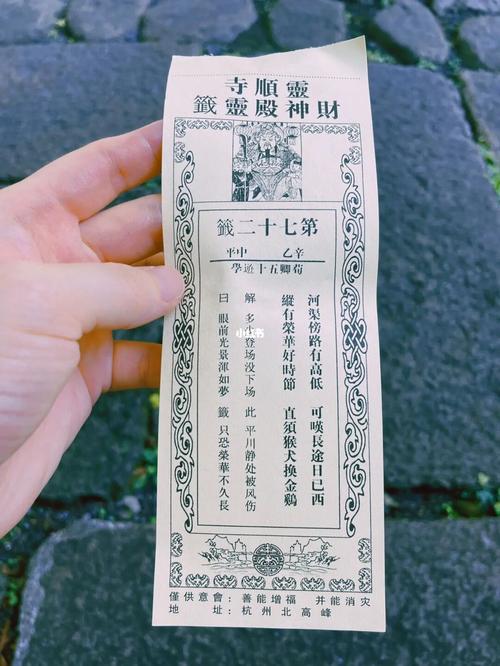 靈順寺
財神殿靈籤
第七十二籤
辛乙 中平
荀卿五十遊學
河渠傍路有高低 可嘆長途日已西
縱有榮華好時節 直須猴犬換金鷄
解 多登场没下场 此 平川静处被风伤
曰 眼前光景渾如夢 籤 只恐榮華不久長
小红书
僅供意會：善能增福 并能消灾
地 址：杭州北高峰